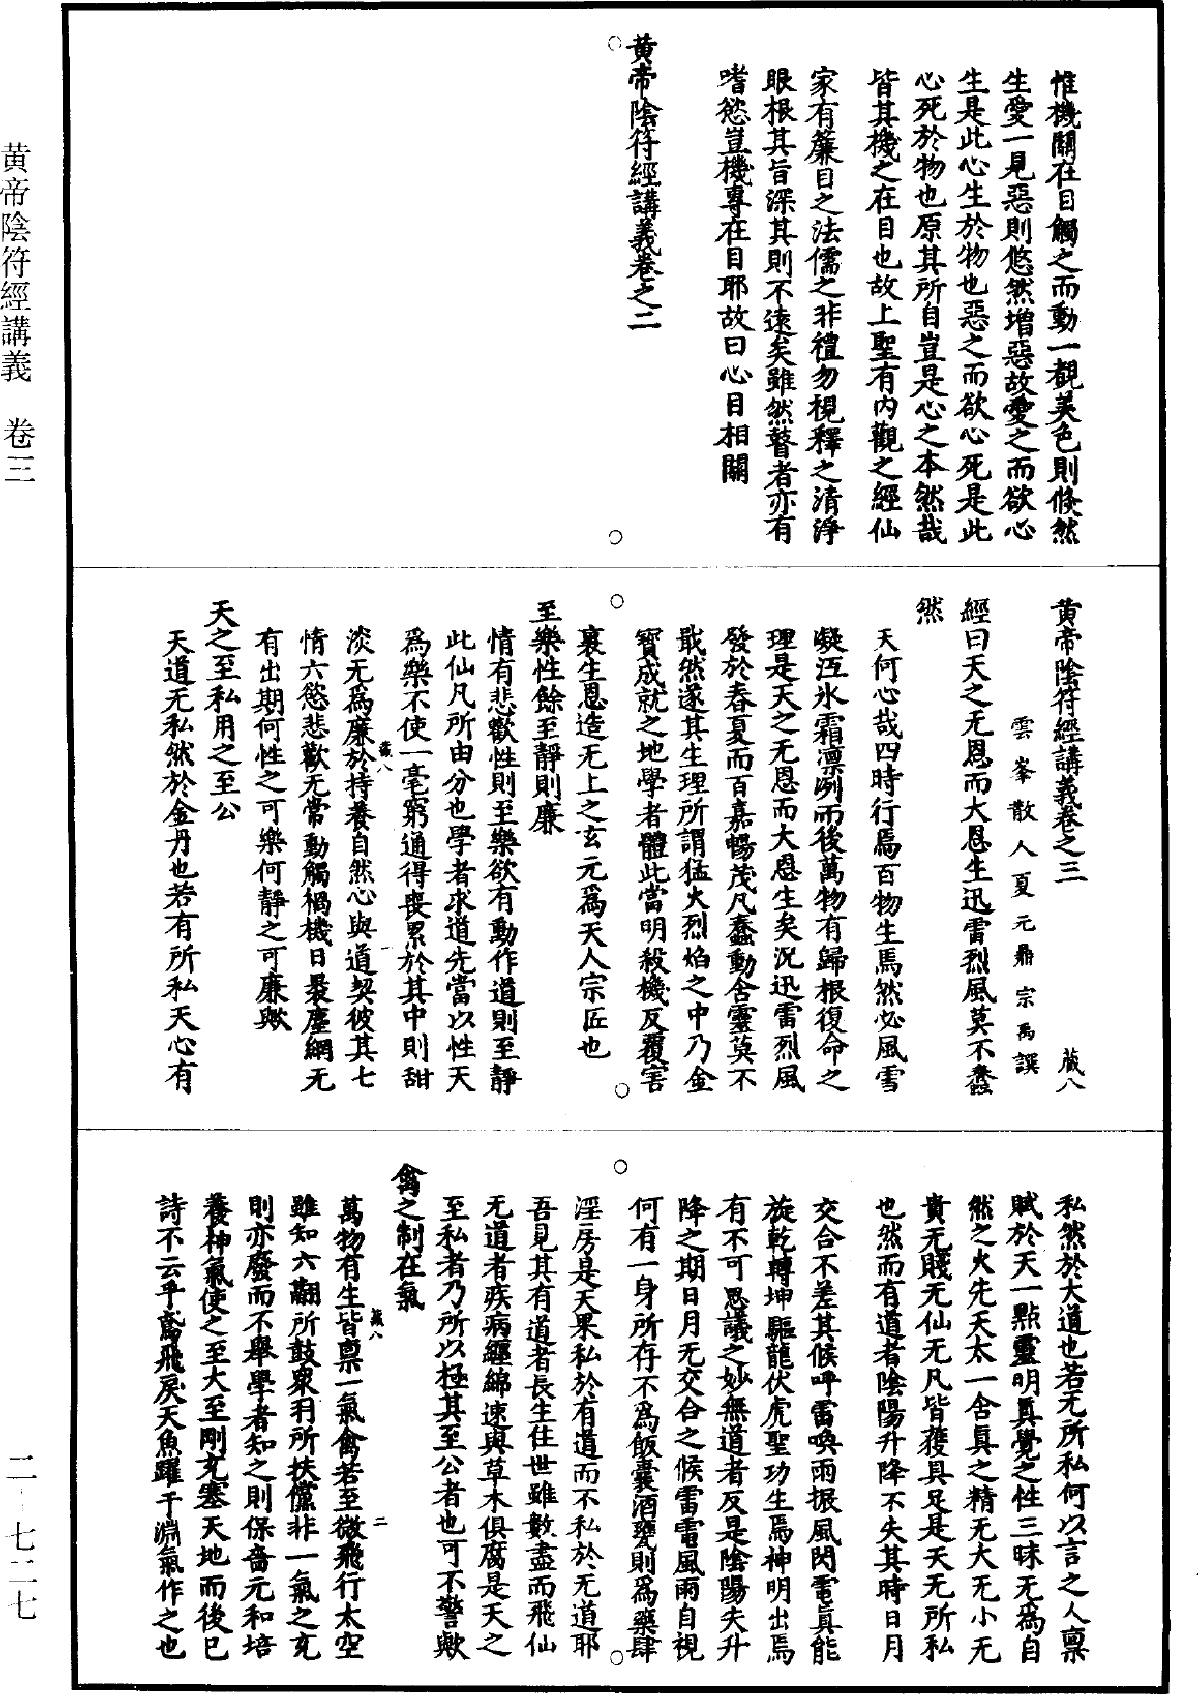 惟機關在目觸之而動一覩美色則倏然
生愛一見惡則悠然增惡故愛之而欲心
生是此心生於物也惡之而欲心死是此
心死於物也原其所自豈是心之本然哉
皆其機之在目也故上聖有内觀之經仙
家有簾目之法儒之非禮勿視釋之清淨
眼根其旨深其則不遠矣雖然瞽者亦有
嗜慾豈機專在目耶故曰心目相關
黄帝陰符經講義卷之二
黄帝陰符經講義卷之三 藏八
雲峯散人夏元鼎宗禹譔
經曰天之无恩而大恩生迅雷烈風莫不蠢
然
天何心哉四時行焉百物生焉然必風雪
凝沍氷霜凛冽而後萬物有歸根復命之
理是天之无恩而大恩生矣况迅雷烈風
發於春夏而百嘉暢茂凡蠢動含靈莫不
戢然遂其生理所謂猛火烈焰之中乃金
寳成就之地學者體此當明殺機反覆害
裏生恩造无上之玄元爲天人宗匠也
至樂性餘至靜則廉
情有悲歡性則至樂欲有動作道則至靜
此仙凡所由分也學者求道先當以性天
爲樂不使一毫窮通得喪累於其中則甜
淡无爲廉於持養自然心與道契彼其七
情六慾悲歡无常動觸禍機日嬰塵網无
有出期何性之可樂何靜之可廉歟
天之至私用之至公
天道无私然於金丹也若有所私天心有
藏八
一
私然於大道也若无所私何以言之人禀
賦於天一點靈明真覺之性三昧无爲自
然之火先天太一含真之精无大无小无
貴无賤无仙无凡皆獲具足是天无所私
也然而有道者陰陽升降不失其時日月
交合不差其候呼雷喚雨振風閃電真能
旋乾轉坤驅龍伏虎聖功生焉神明出焉
有不可思議之妙無道者反是陰陽失升
降之期日月无交合之候雷電風雨自視
何有一身所存不爲飯囊酒甕則爲藥肆
淫房是天果私於有道而不私於无道耶
吾見其有道者長生住世雖數盡而飛仙
无道者疾病經綿速與草木俱腐是天之
至私者乃所以極其至公者也可不警歟
禽之制在氣
萬物有生皆禀一氣禽若至微飛行太空
雖知六翮所鼓衆羽所扶儻非一氣之充
則亦廢而不舉學者知之則保嗇元和培
養神氣使之至大至剛充塞天地而後已
詩不云乎鳶飛戾天魚躍于淵氣作之也
藏八
二
黄帝陰符經講義 卷三
二-七二七